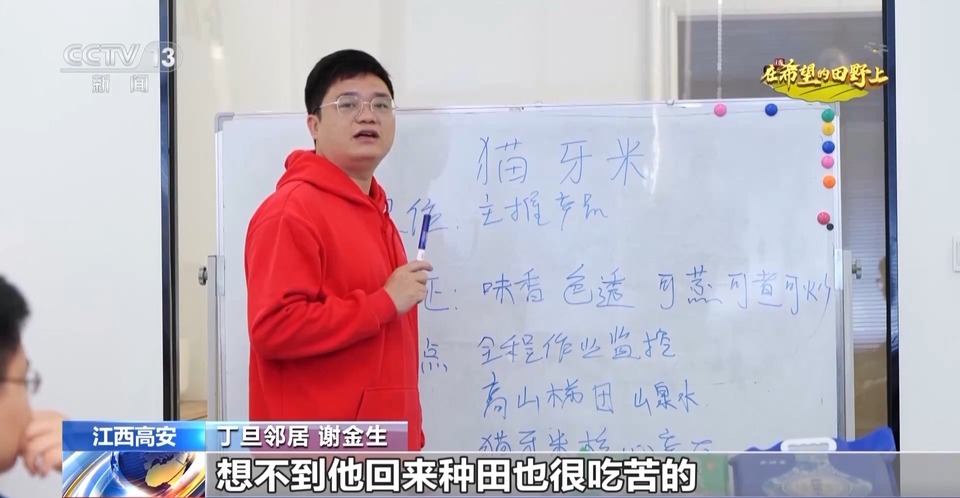 CCTV 13
新闻
在希望的田野上
猫牙米
位: 主推产品
: 味香 色透 可蒸可煮可炒
点 全程作业监控
高山梯田 山泉水
猫牙米核心产区
江西高安
丁旦邻居 谢金生
想不到他回来种田也很吃苦的